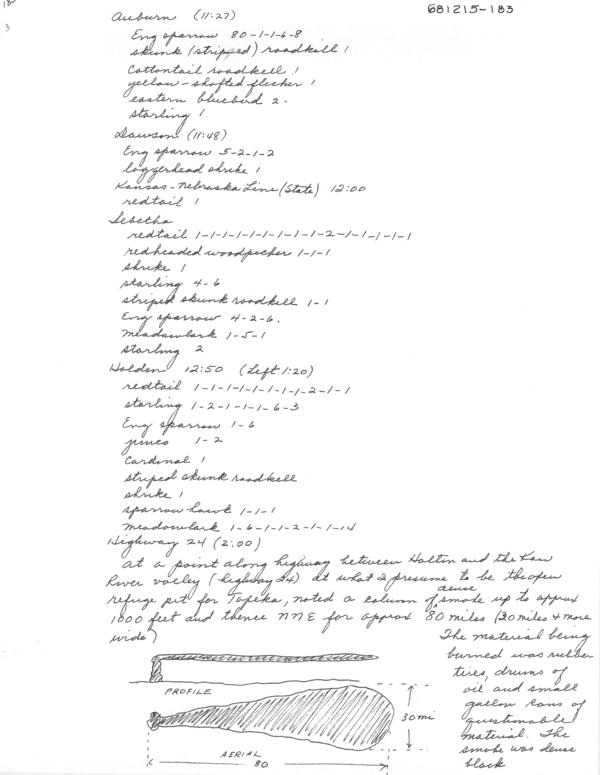 681215-183
3
Auburn (11:27)
Eng sparrow 80-1-1-6-8
skunk (striped) roadkill 1
Cottontail roadkill 1
yellow-shafted flicker 1
eastern bluebird 2.
starling 1
Dawson (11:48)
Eng sparrow 5-2-1-2
loggerhead shrike 1
Kansas-Nebraska Line (State) 12:00
redtail 1
Sebetha
redtail 1-1-1-1-1-1-1-1-1-2-1-1-1-1-1
redheaded woodpecker 1-1-1
shrike 1
starling 4-6
striped skunk roadkill 1-1
Eng sparrow 4-2-6.
Meadowlark 1-5-1
starling 2
Holden 12:50 (Left 1:20)
redtail 1-1-1-1-1-1-1-1-2-1-1
starling 1-2-1-1-1-6-3
Eng sparrow 1-6
junco 1-2
Cardinal 1
striped skunk roadkill
shrike 1
sparrow hawk 1-1-1
Meadowlark 1-6-1-1-2-1-1-14
Highway 24 (2:00)
at a point along highway between Holton and the Kaw
River valley (highway 24) at what I presume to be the open
refuge pit for Topeka, noted a column of dense smoke up to approx
1000 feet and thence NNE for approx 80 miles (30 miles & more
wide)
The material being
burned was rubber
tires, drums of
oil and small
gallon cans of
questionable
material. The
smoke was dense
black
PROFILE
30 mi
AERIAL
80